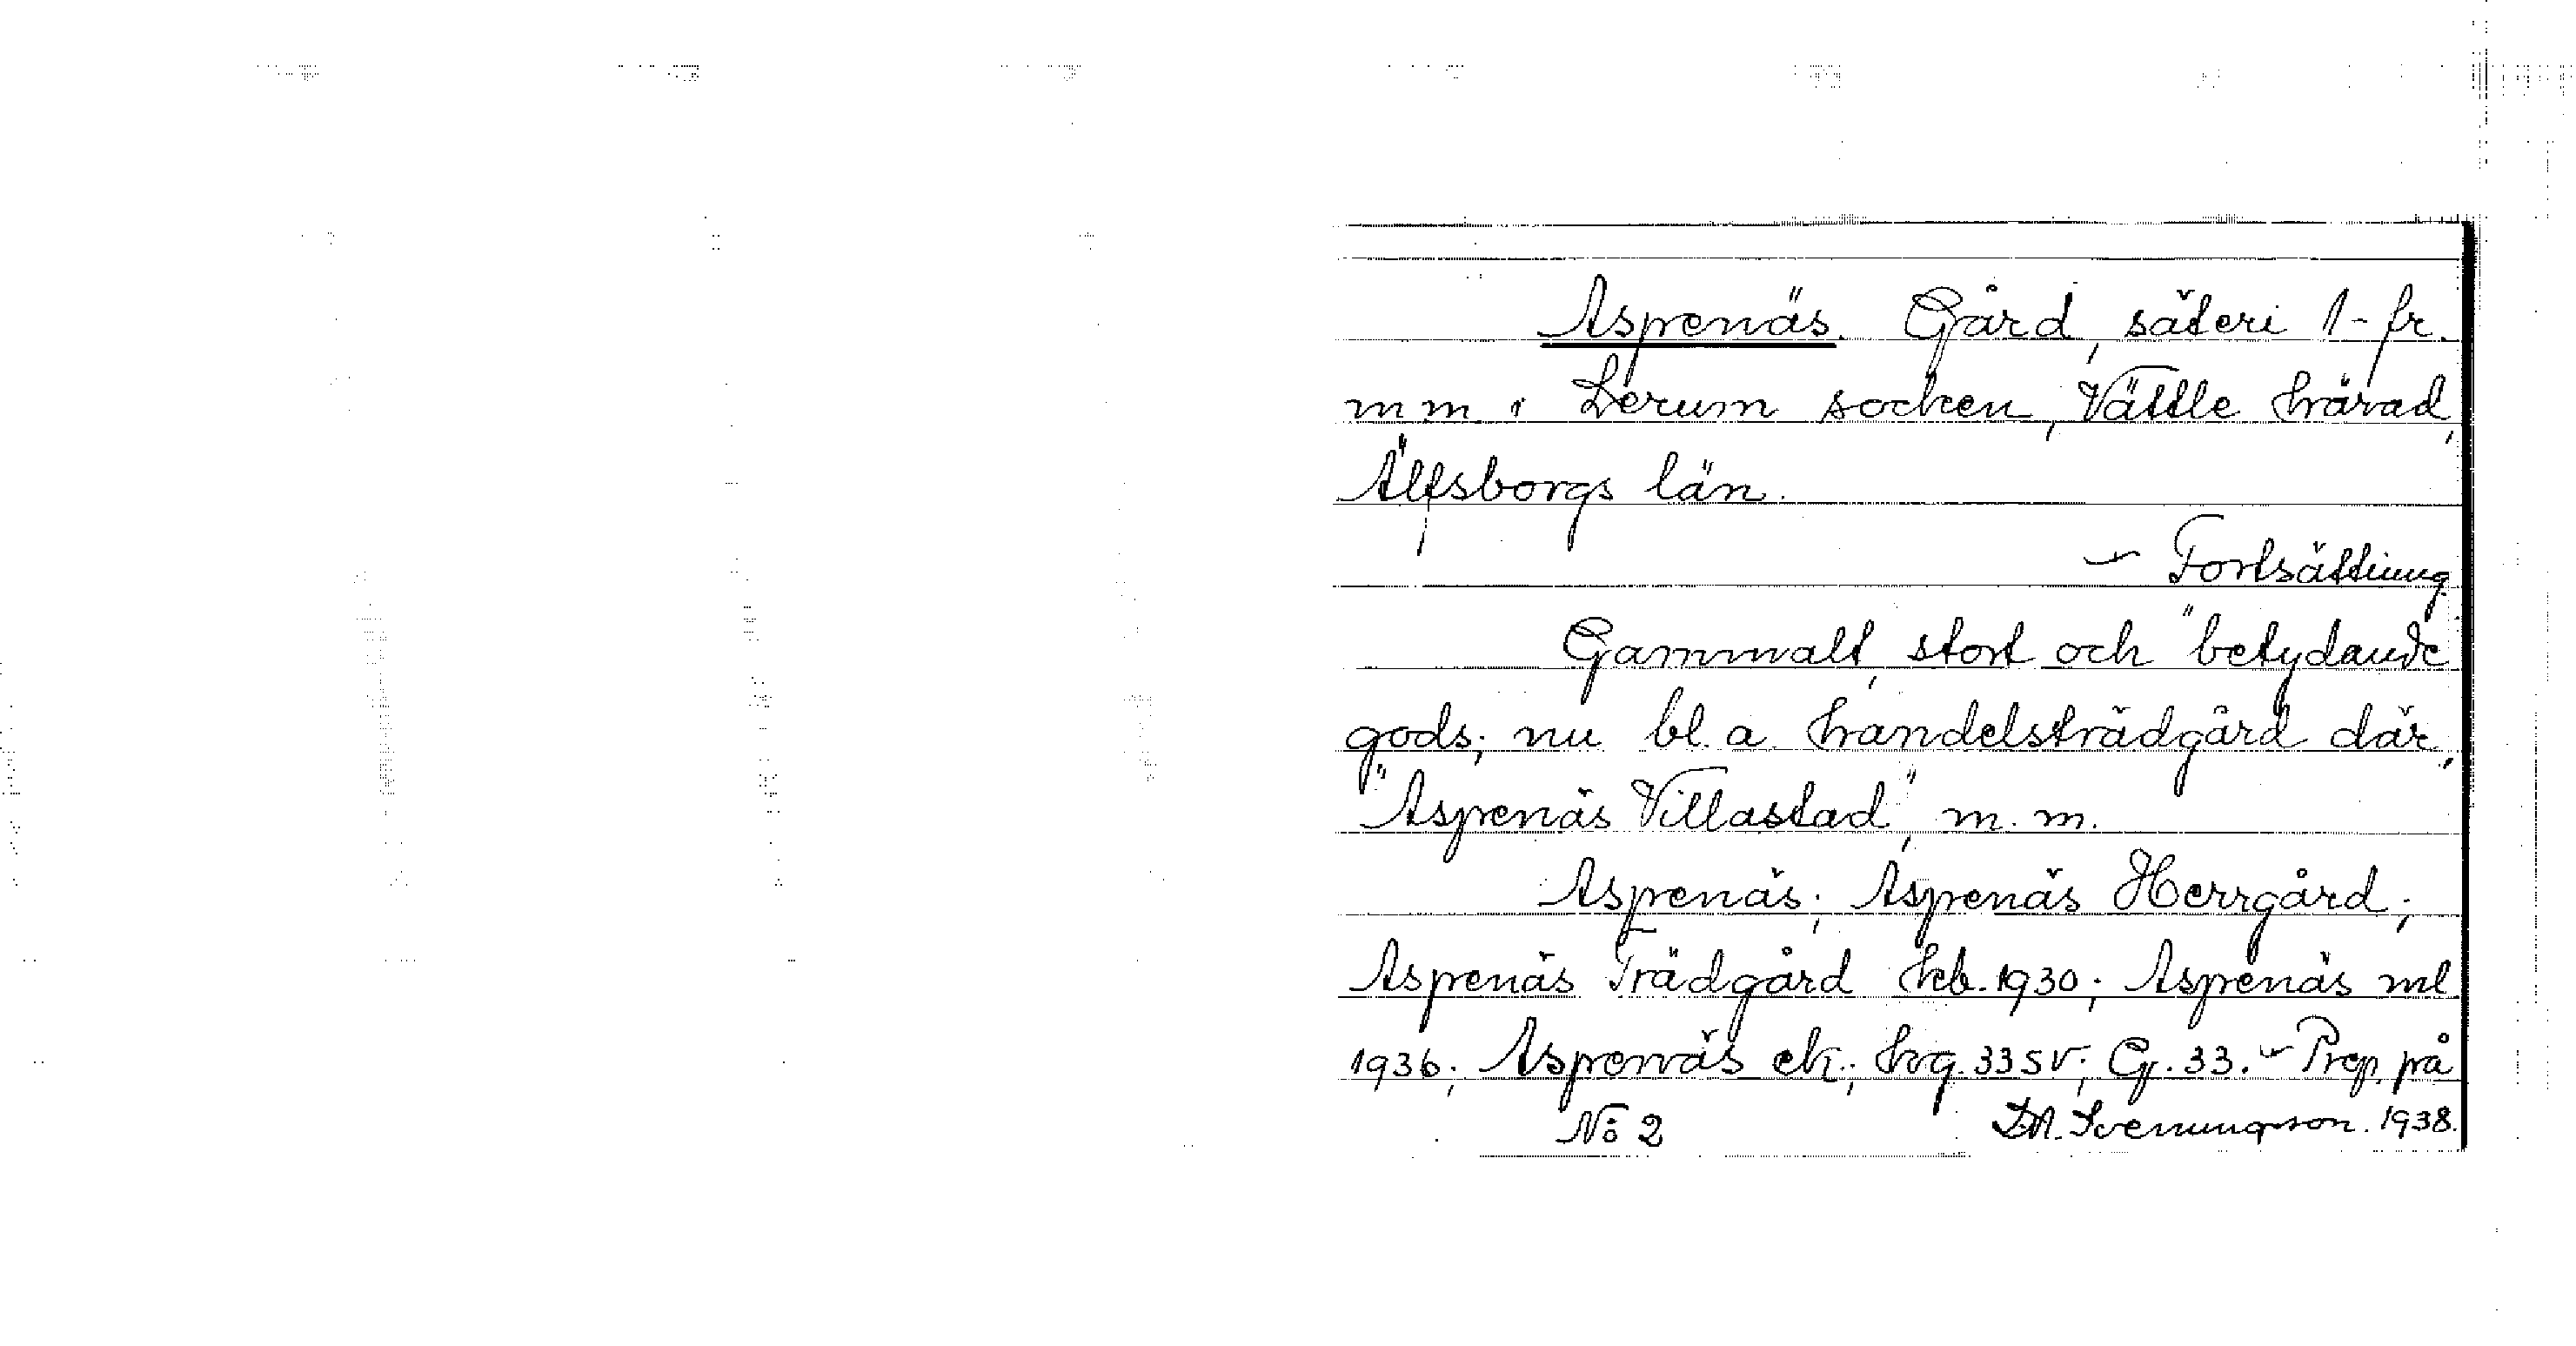 Aspenäs. Gård, säteri 1-fr.
m m i Lerum socken, Vättle härad,
Älfsborgs län.
– Fortsättning.
Gammalt, stort och "betydande"
gods; nu bl. a. handelsträdgård där,
"Aspenäs Villastad", m. m.
Aspenäs; Aspenäs Herrgård;
Aspenäs Trädgård hcb. 1930; Aspenäs ml
1936; Aspenäs ek.; hvg. 33 SV; Gj. 33. – Prep. på
No 2 D.A. Svenungsson. 1938.